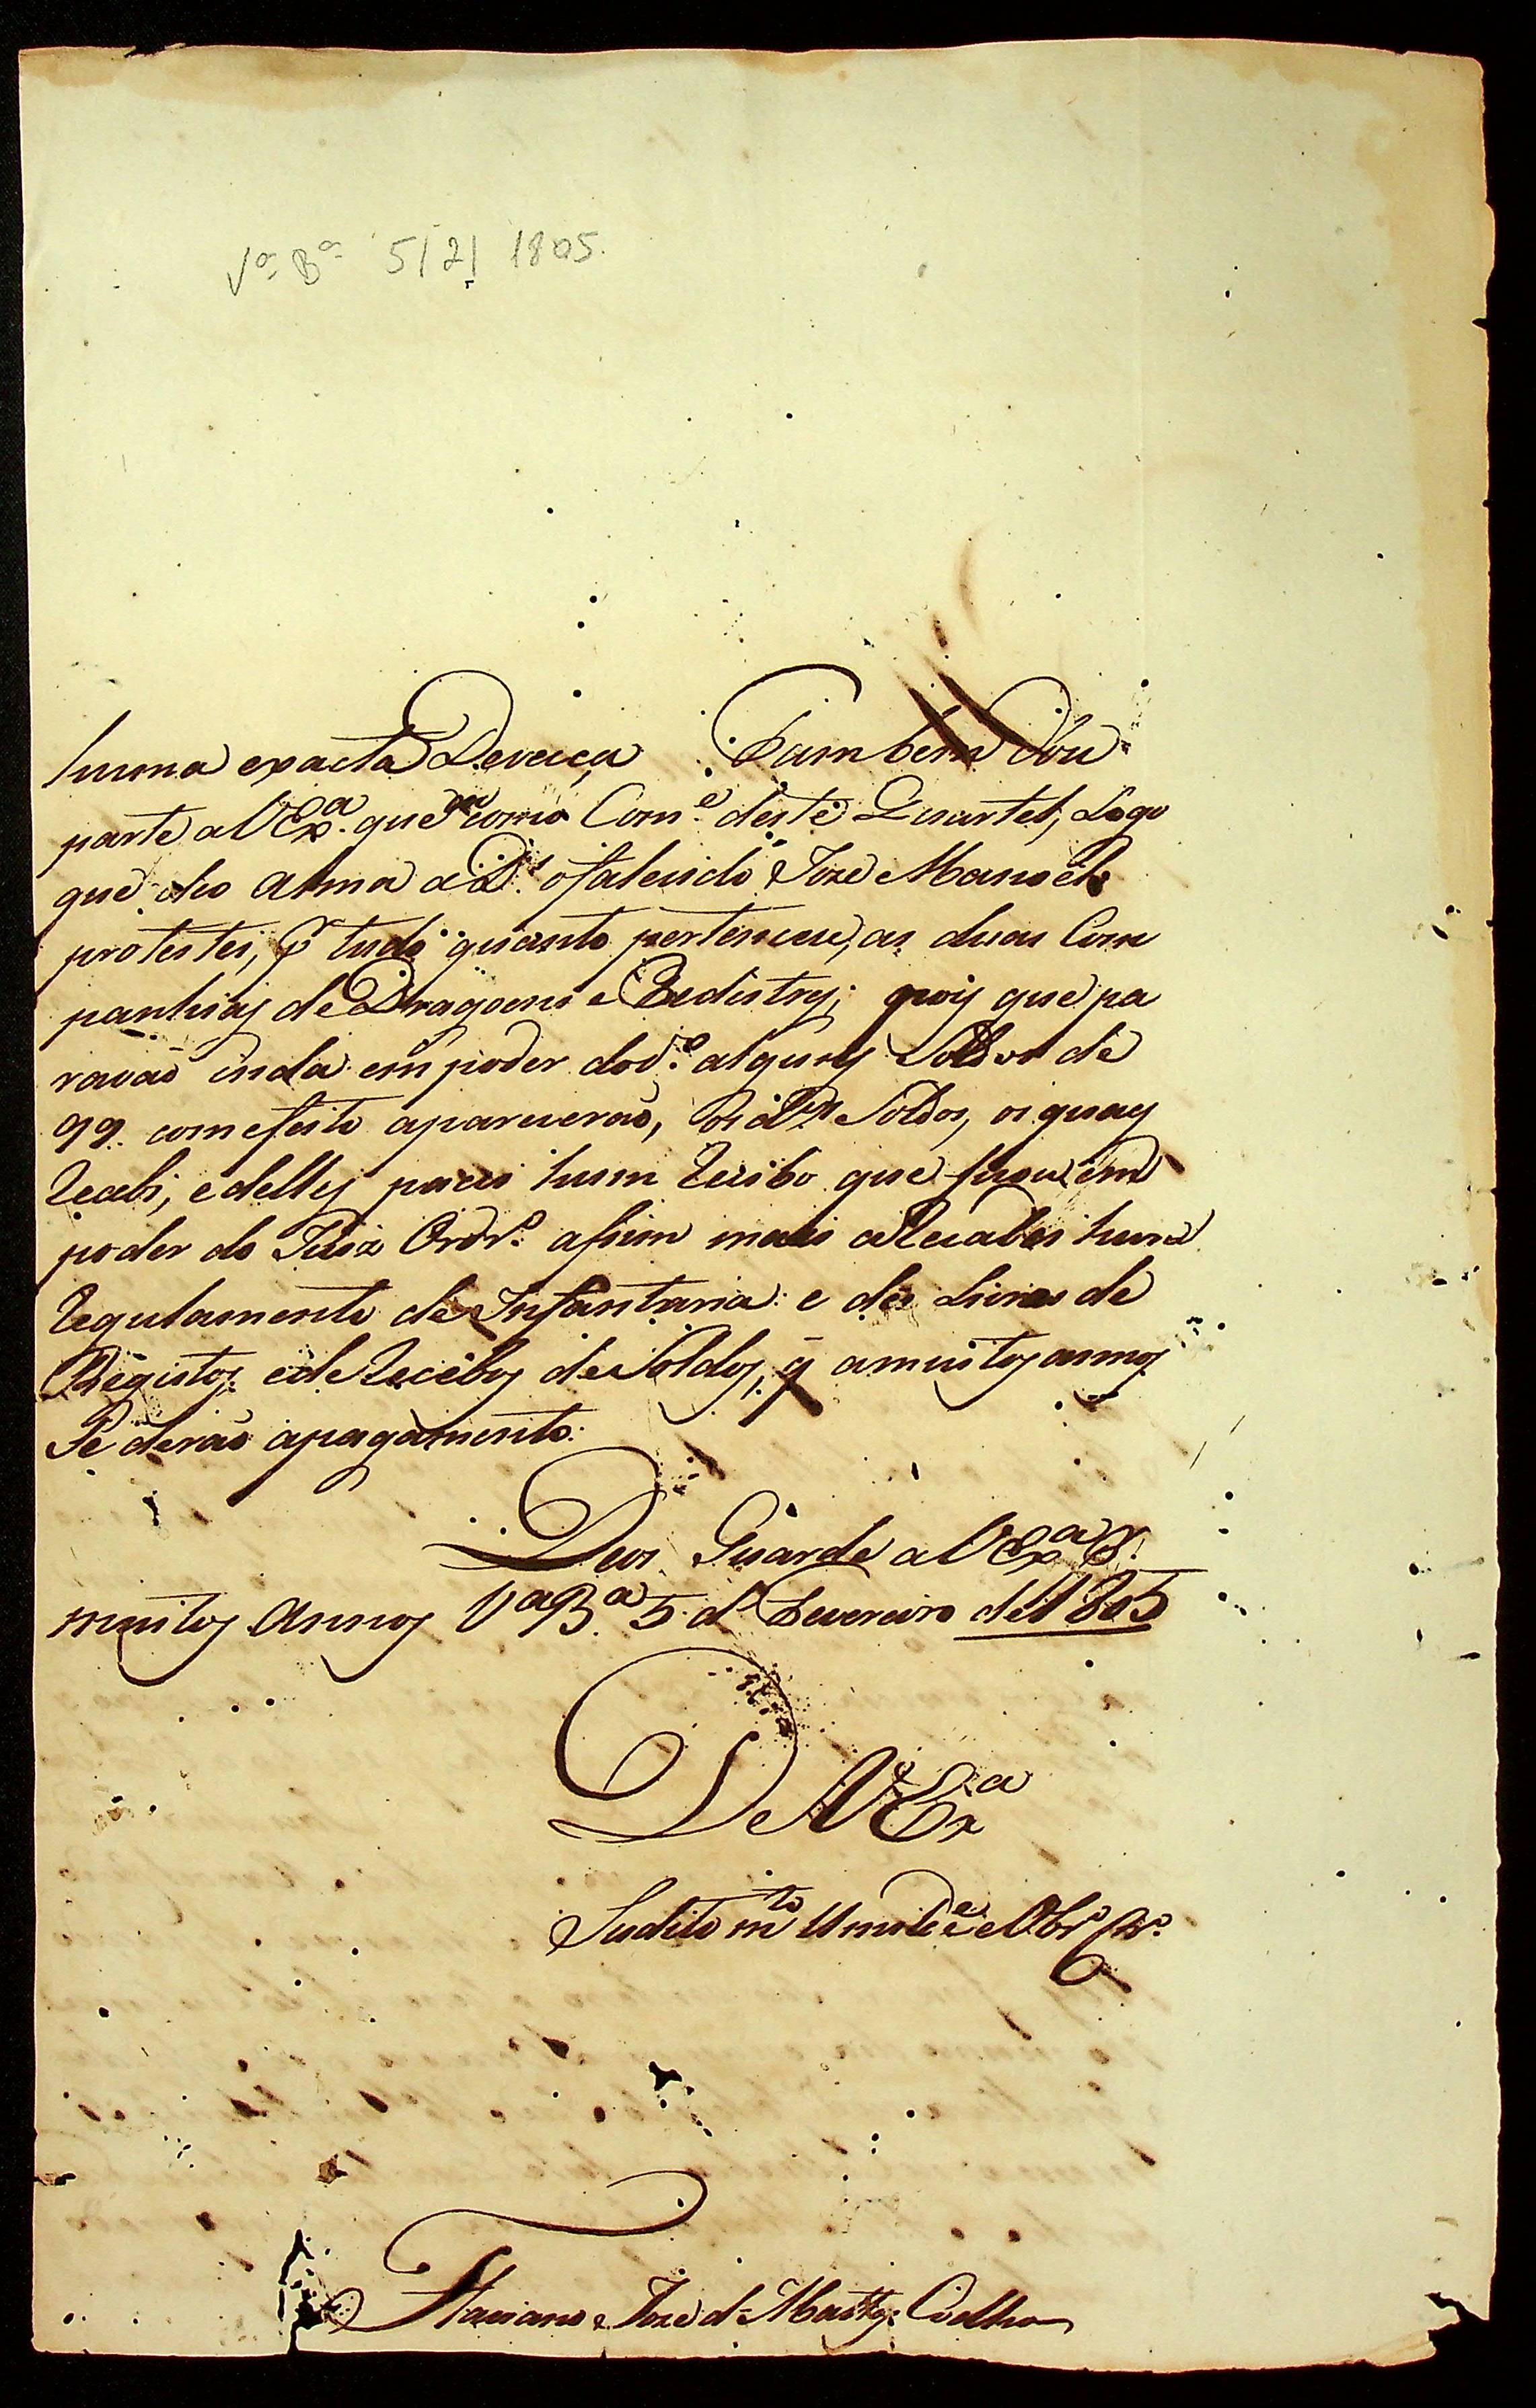 Vª Bª 5/2/1805.
huma exacta Devaça, Tambem dou
parte a V Exª que como Comᵉ deste Quartel, Logo
que deo Alma a Dˢ o falecido Joze Manoel
protestei, p tudo quanto pertencece, as duas Com
panhias de Dragoens e Pedistres; pois que pa
ravaõ inda em poder do dº alguns Soldos de
99. com efeito aparecerão, os dᵒˢ Soldos, os quaes
Recebi, e delles pacei hum Recibo que ficou em
poder do Juiz Ordrº asim mais a Recadei hum
Regulamento de Infantaria: e dois Livros de
Registos e de Recebos de Soldos, q̃ a muitos annos
Se deraõ a pagamento.
Deos Guarde a V Exª
muitos Annos Vª Bª 5 d Fevereiro de 1805
De V Exª
Sudito mᵗᵒ Umildᵉ e Obrº Crº
Flaviano Joze d Mattos Coelho